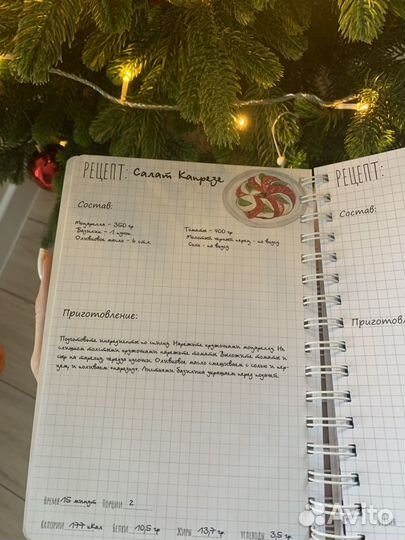 РЕЦЕПТ: Салат Капрезе
Состав:
Моцарелла - 350 гр
Базилик - 1 пучок
Оливковое масло - 6 ст.л.
Томаты - 400 гр
Молотый черный перец - по вкусу
Соль - по вкусу
Приготовление:
Подготовьте ингредиенты по списку. Нарежьте кружочками моцареллу. Не
слишком толстыми кружочками нарежьте томаты. Выложите томаты и
сыр на тарелку, чередуя кусочки. Оливковое масло смешиваем с солью и пер-
цем, и поливаем капрезе. Листьями базилика украшаем перед подачей.
ВРЕМЯ 15 минут ПОРЦИИ 2
КАЛОРИИ 177 кКал БЕЛКИ 10,5 гр ЖИРЫ 13,7 гр УГЛЕВОДЫ 3,5 гр
РЕЦЕПТ:
Состав:
Приготовл
Avito